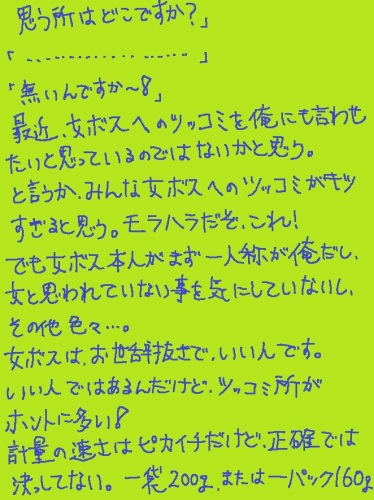 思う所はどこですか?」
「……………………」
「無いんですか〜!」
最近、女ボスへのツッコミを俺にも言わせ
たいと思っているのではないかと思う。
と言うか、みんな女ボスへのツッコミがキツ
すぎると思う。モラハラだぞ、これ!
でも女ボス本人がまず一人称が俺だし、
女と思われていない事を気にしていないし、
その他色々…。
女ボスは、お世辞抜きで、いい人です。
いい人ではあるんだけど、ツッコミ所が
ホントに多い!
計量の速さはピカイチだけど、正確では
決してない。一袋200g、または一パック160g